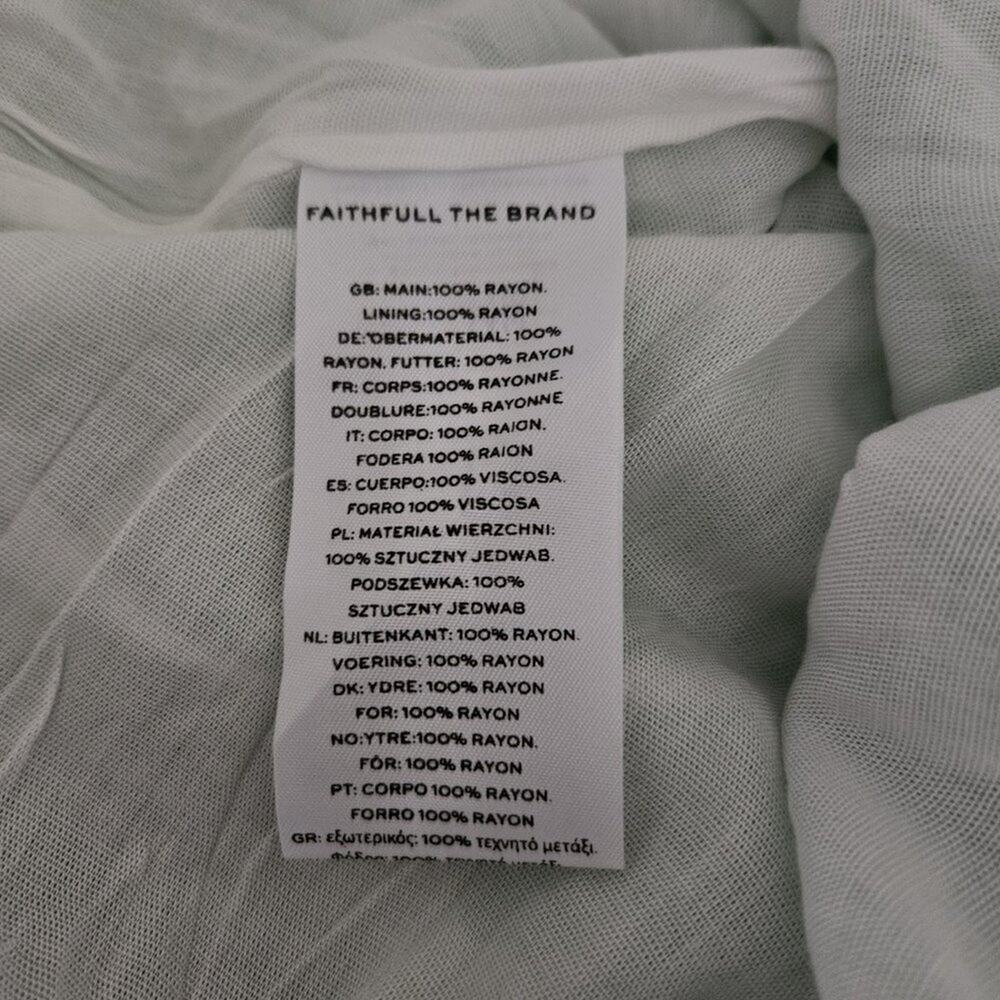 FAITHFULL THE BRAND
GB: MAIN:100% RAYON.
LINING:100% RAYON
DE:OBERMATERIAL: 100%
RAYON. FUTTER: 100% RAYON
FR: CORPS:100% RAYONNE.
DOUBLURE:100% RAYONNE
IT: CORPO: 100% RAION.
FODERA 100% RAION
ES: CUERPO:100% VISCOSA.
FORRO 100% VISCOSA
PL: MATERIAŁ WIERZCHNI:
100% SZTUCZNY JEDWAB.
PODSZEWKA: 100%
SZTUCZNY JEDWAB
NL: BUITENKANT: 100% RAYON.
VOERING: 100% RAYON
DK: YDRE: 100% RAYON
FOR: 100% RAYON
NO:YTRE:100% RAYON.
FÔR: 100% RAYON
PT: CORPO 100% RAYON.
FORRO 100% RAYON
GR: εξωτερικός: 100% τεχνητό μετάξι.
100%